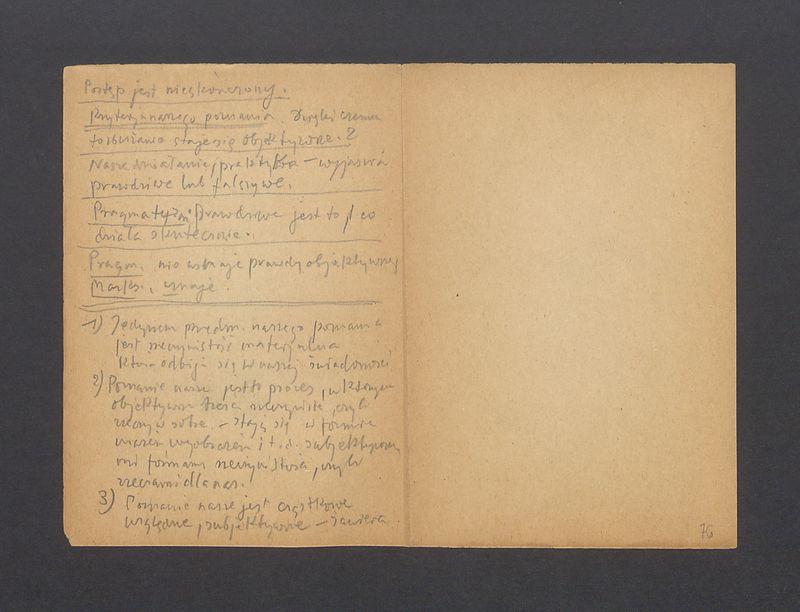 Postęp jest nieskończony.
Kryterja naszego poznania. Dzięki czemu
to staje się objektywne.?
Nasze działanie, praktyka – wyjaśnia
prawdziwe lub fałszywe.
Pragmatyzm: Prawdziwe jest to, co
działa skutecznie.
Pragm. nie uznaje prawdy objektywnej
Marks. uznaje.
1) Jedynem przedm. naszego poznania
jest rzeczywistość materjalna
która odbija się w naszej świadomości
2) Poznanie nasze jest to proces, w którym
objektywna treść rzeczywista, czyli
rzeczy w sobie. – stają się w formie
wrażeń wyobrażeń i t.d. subjektywne
mi formami rzeczywistości, czyli
rzeczami dla nas.
3) Poznanie nasze jest cząstkowe
względne, subjektywne – zawiera
76